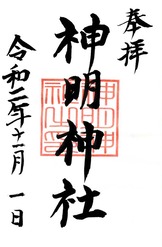 奉拝
神明神社
令和二年十一月一日